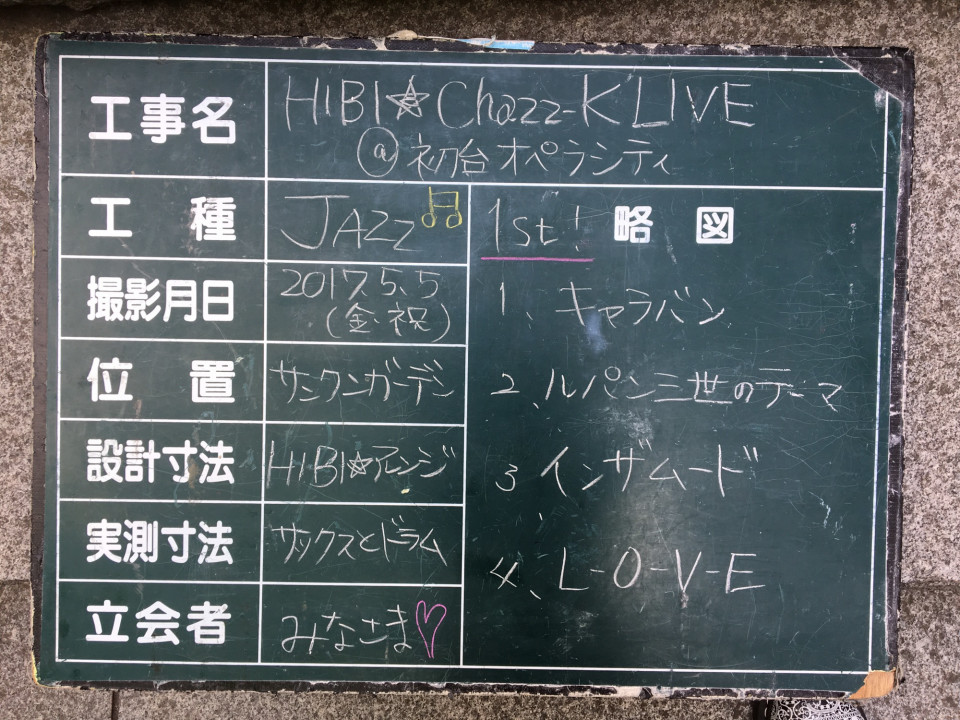 工事名
HIBI☆Chazz-K LIVE
@初台オペラシティ
工種
JAZZ♫
撮影月日
2017.5.5
(金・祝)
位置
サンクンガーデン
設計寸法
HIBI☆アレンジ
実測寸法
サックスとドラム
立会者
みなさま♡
1st! 略図
1、キャラバン
2、ルパン三世のテーマ
3 インザムード
4、L-O-V-E